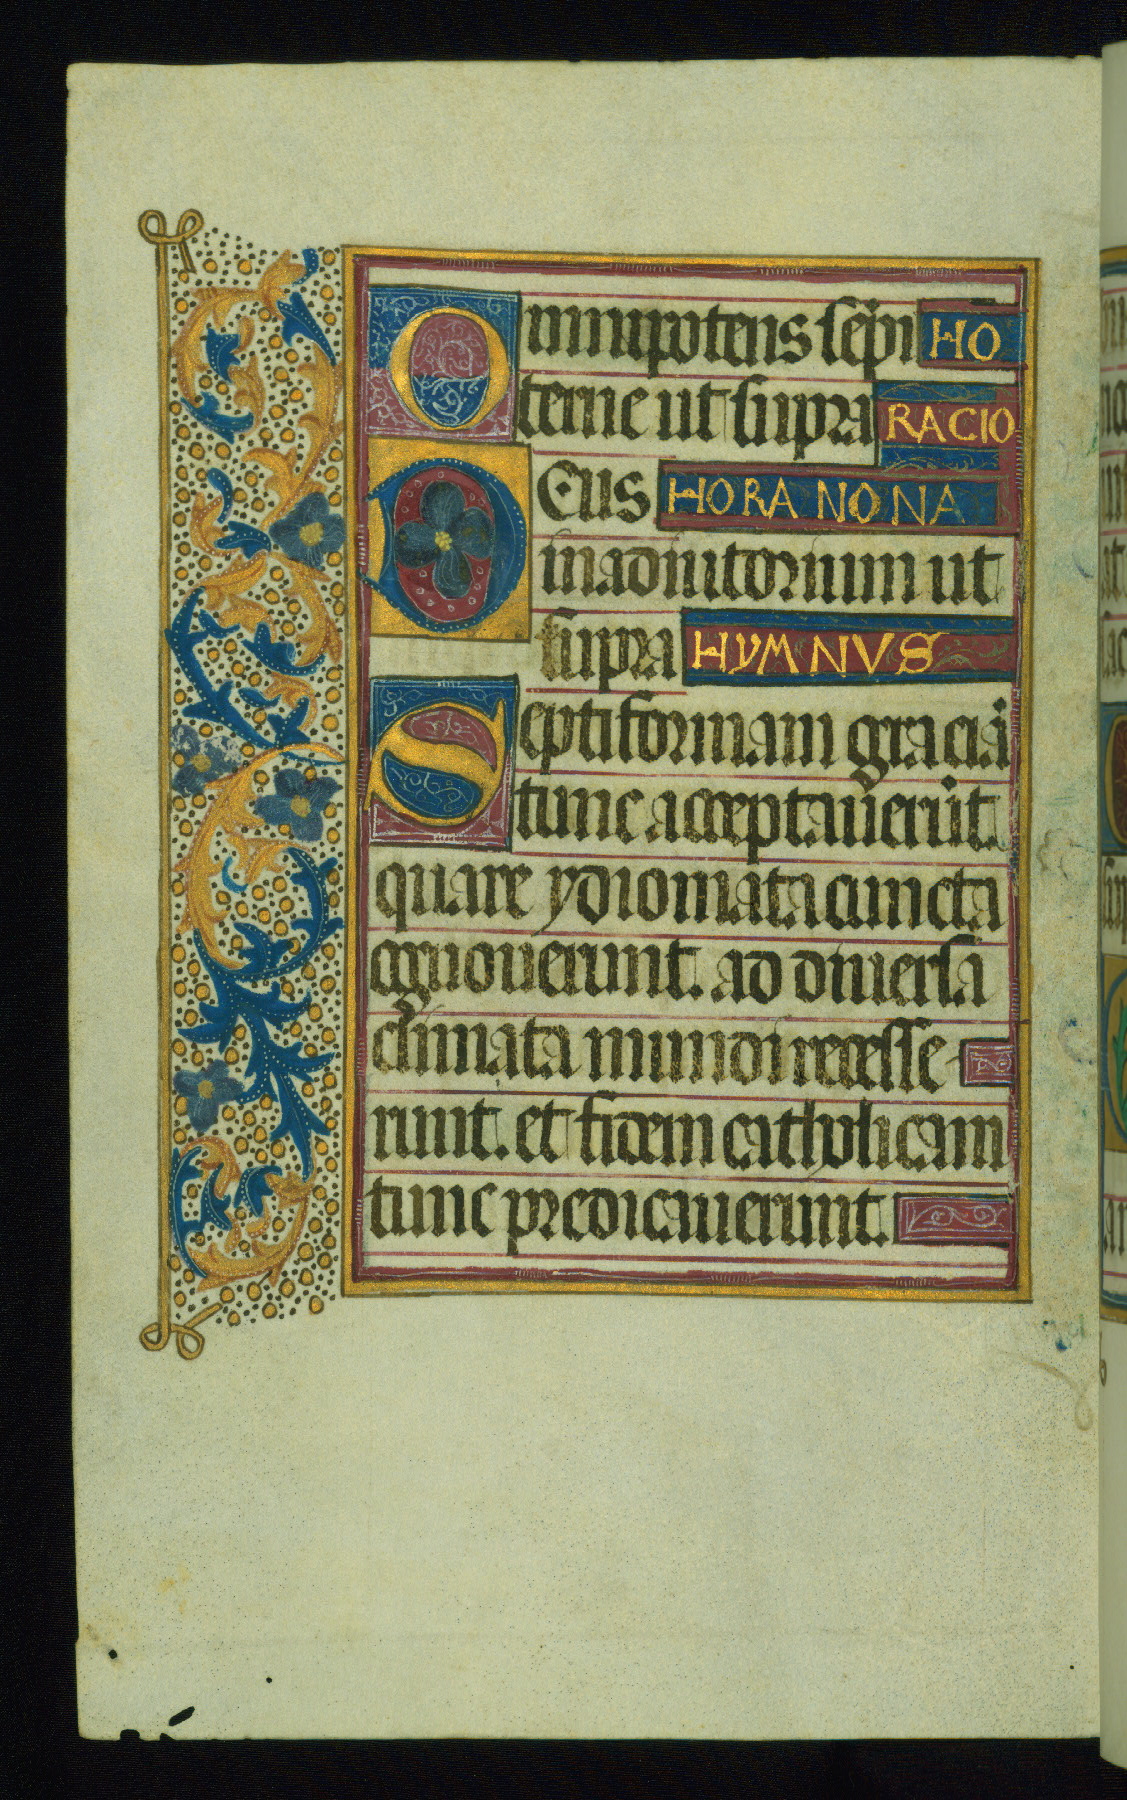 Omnipotens sēpi HO
terne ut supra RACIO
DEus HORA NONA
in adiutorium ut
supra HYMNVS
Septiformam graciā
tunc acceptauerūt
quare ydiomata cuncta
cognouerunt. ad diuersa
climata mundi recesse
runt. et fidem catholicam
tunc predicauerunt.